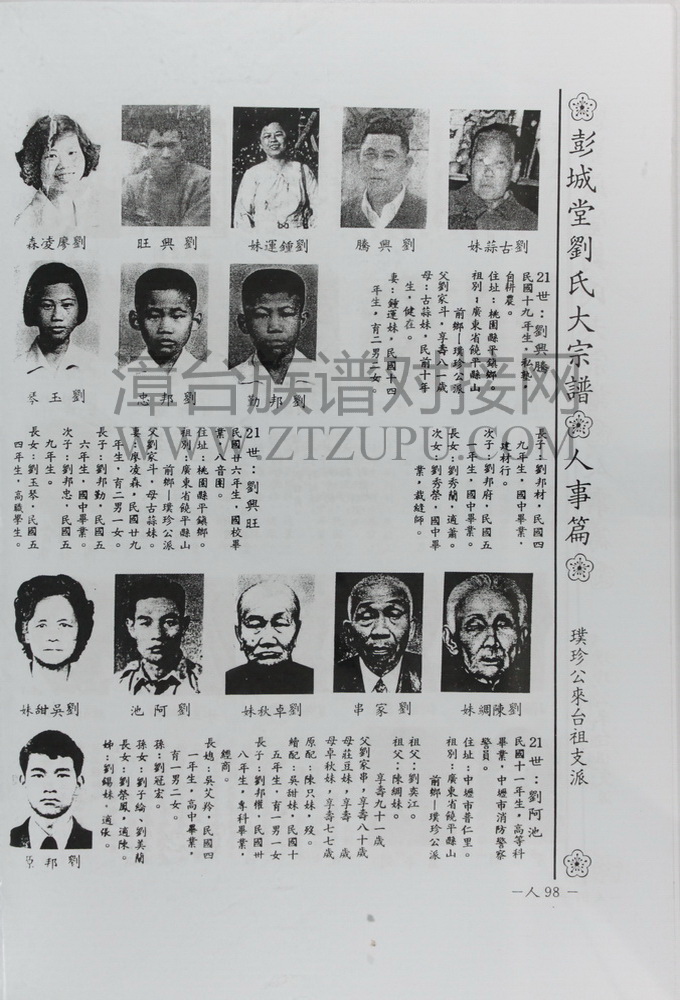 彭城堂劉氏大宗譜 人事篇
璞珍公來台祖支派
劉古蒜妹
劉興騰
劉鍾運妹
劉興旺
劉廖凌森
21世：劉興騰
民國十九年生，私塾，
自耕農。
住址：桃園縣平鎮鄉。
祖別：廣東省饒平縣山
前鄉—璞珍公派
父劉家斗，享壽八一歲
母：古蒜妹，民前十年
生，健在。
妻：鍾運妹，民國十四
年生，有二男二女。
劉邦勤
劉邦忠
劉玉琴
長子：劉邦材，民國四
九年生，國中畢業，
建材行。
次子：劉邦府，民國五
一年生，國中畢業。
長女：劉秀蘭，適蕭。
次女：劉秀榮，國中畢
業，裁縫師。
21世：劉興旺
民國廿六年生，國校畢
業，八音團。
住址：桃園縣平鎮鄉。
祖別：廣東省饒平縣山
前鄉—璞珍公派
父劉家斗，母古蒜妹。
妻：廖凌森，民國廿九
年生，有二男一女。
長子：劉邦勤，民國五
六年生，國中畢業。
次子：劉邦忠，民國五
九年生。
長女：劉玉琴，民國五
四年生，高職學生。
劉陳綢妹
劉家串
劉卓秋妹
劉阿池
劉吳甜妹
21世：劉阿池
民國十一年生，高等科
畢業，中壢市消防警察
警員。
住址：中壢市普仁里。
祖別：廣東省饒平縣山
前鄉—璞珍公派
祖父：劉奕江。
祖父：陳綢妹。
享壽九十一歲
父劉家串，享壽八十歲
母莊豆妹，享壽 歲
母卓秋妹，享壽七七歲
原配：陳只妹，歿。
續配：吳甜妹，民國十
五年生，有一男一女
長子：劉邦㯋，民國卅
八年生，專科畢業，
經商。
長媳：吳艾玲，民國四
一年生，高中畢業，
有一男二女。
孫：劉冠宏。
孫女：劉子綸、劉美蘭
長女：劉榮鳳，適陳。
姊：劉錫妹，適張。
劉邦
—人98—
漳台族谱对接网
WWW.ZTZUPU.COM